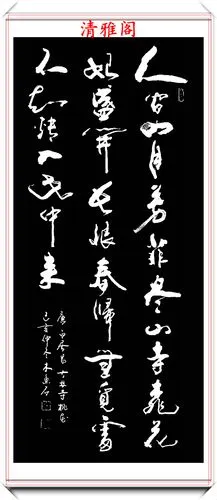 清雅阁
人间四月芳菲尽山寺桃花
始盛开长恨春归无觅处
不知转入此中来
唐白居易大林寺桃花